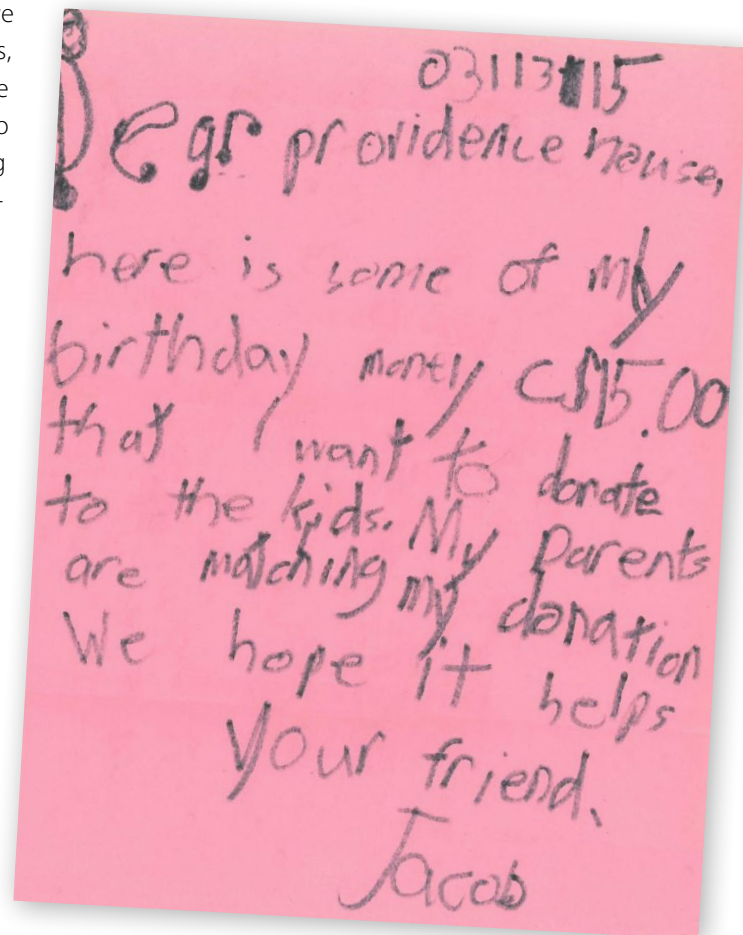 03/13/15
Dear providence house,
here is some of my
birthday money ($15.00
that I want to donate
to the kids. My parents
are matching my donation
We hope it helps
your friend,
Jacob